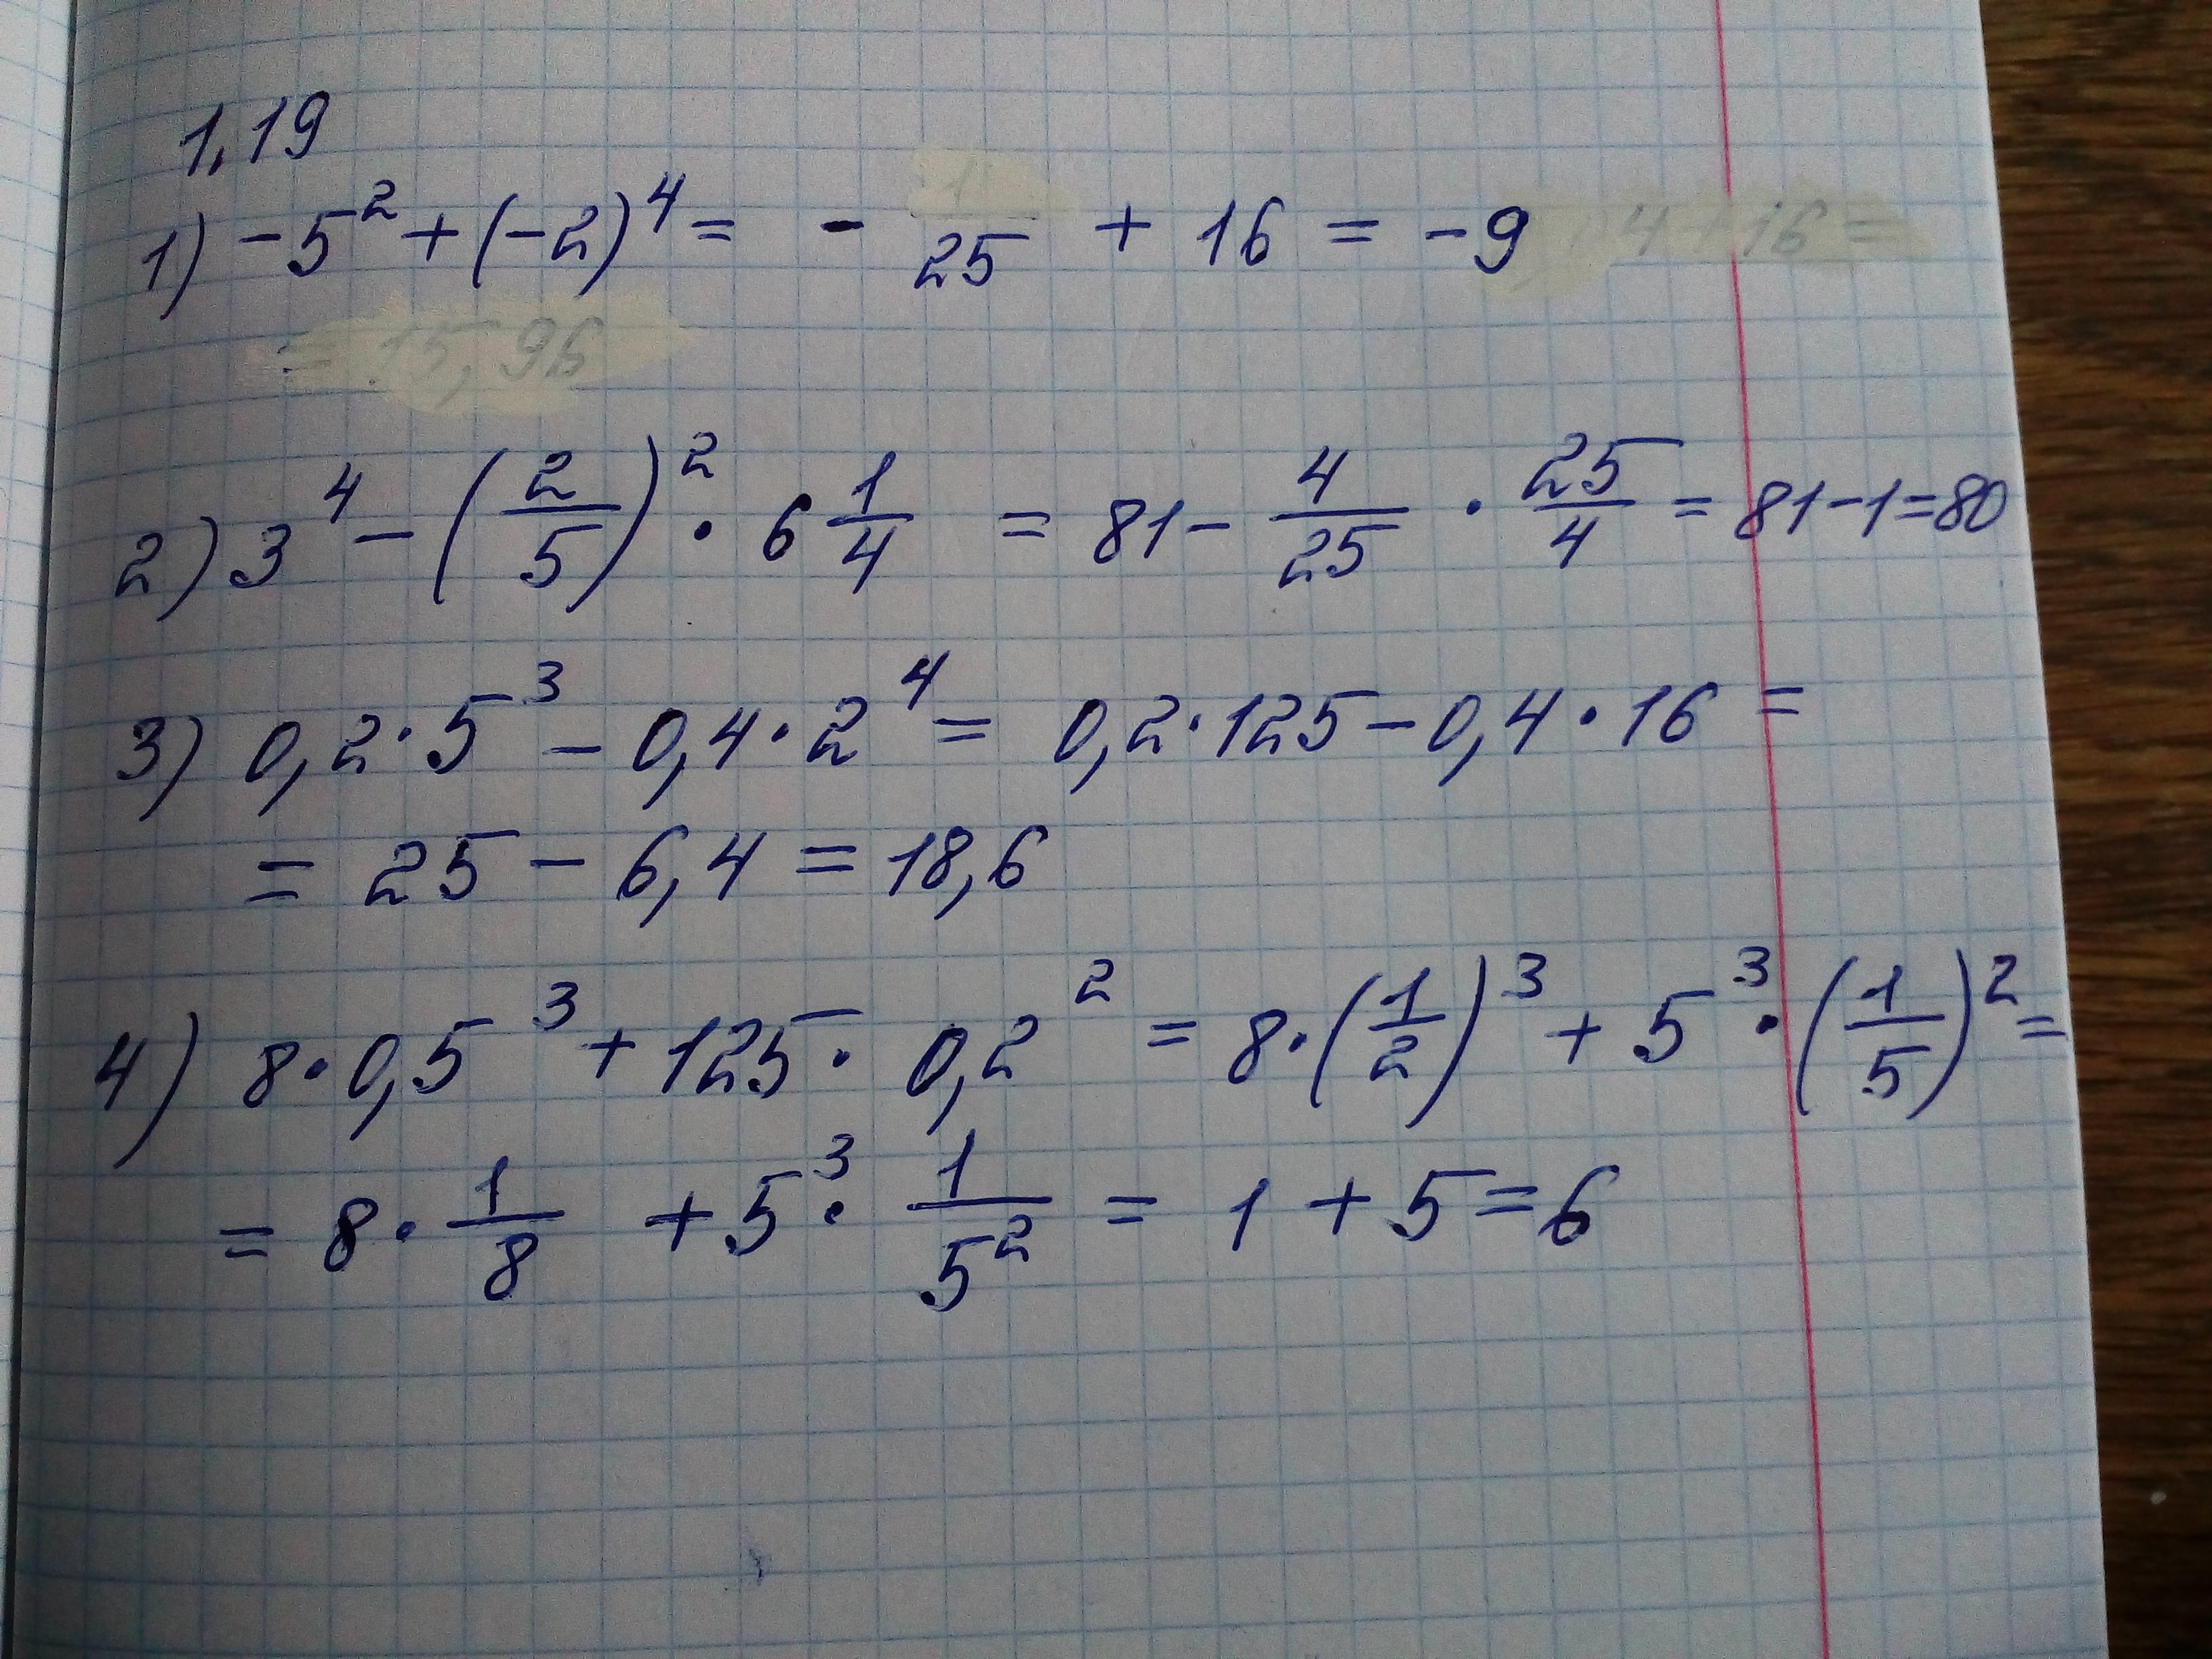 1.19
1) -5² + (-2)⁴ = - 25 + 16 = -9
2) 3⁴ - (2/5)² · 6 1/4 = 81 - 4/25 · 25/4 = 81 - 1 = 80
3) 0,2 · 5³ - 0,4 · 2⁴ = 0,2 · 125 - 0,4 · 16 =
= 25 - 6,4 = 18,6
4) 8 · 0,5³ + 125 · 0,2² = 8 · (1/2)³ + 5³ · (1/5)² =
= 8 · 1/8 + 5³ · 1/5² = 1 + 5 = 6